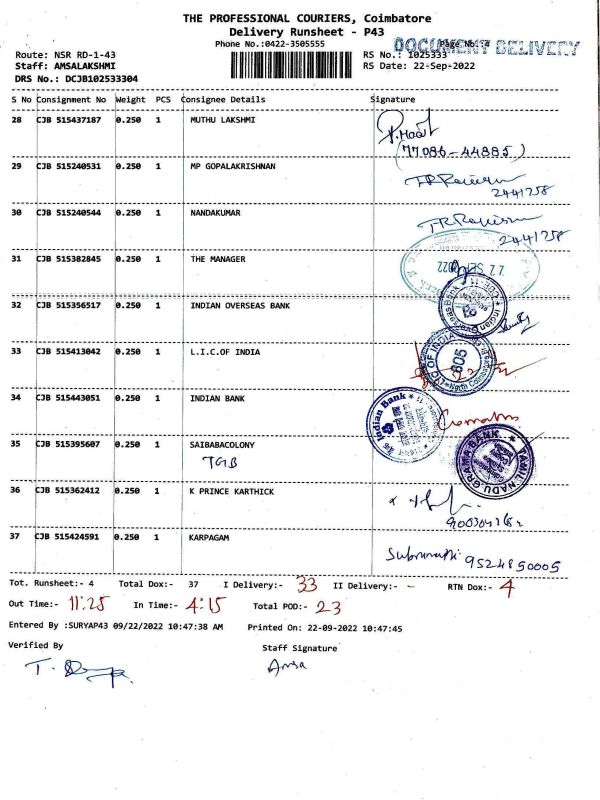 THE PROFESSIONAL COURIERS, Coimbatore
Delivery Runsheet - P43
Phone No.:0422-3505555
Page No.:4
DOCUMENT DELIVERY
Route: NSR RD-1-43
RS No.: 1025333
Staff: AMSALAKSHMI
RS Date: 22-Sep-2022
DRS No.: DCJB102533304
S No Consignment No Weight PCS Consignee Details Signature
28 CJB 515437187 0.250 1 MUTHU LAKSHMI
(77086-44885)
29 CJB 515240531 0.250 1 MP GOPALAKRISHNAN
2441758
30 CJB 515240544 0.250 1 NANDAKUMAR
2441758
31 CJB 515382845 0.250 1 THE MANAGER
32 CJB 515356517 0.250 1 INDIAN OVERSEAS BANK
33 CJB 515413042 0.250 1 L.I.C.OF INDIA
OF INDIA
805
34 CJB 515443051 0.250 1 INDIAN BANK
Indian Bank
35 CJB 515395607 0.250 1 SAIBABACOLONY
TGB
TAMIL NADU GRAMA BANK
36 CJB 515362412 0.250 1 K PRINCE KARTHICK
37 CJB 515424591 0.250 1 KARPAGAM
9524850005
Tot. Runsheet:- 4 Total Dox:- 37 I Delivery:- 33 II Delivery:- - RTN Dox:- 4
Out Time:- 11:25 In Time:- 4:15 Total POD:- 23
Entered By :SURYAP43 09/22/2022 10:47:38 AM Printed On: 22-09-2022 10:47:45
Verified By Staff Signature
Amsa